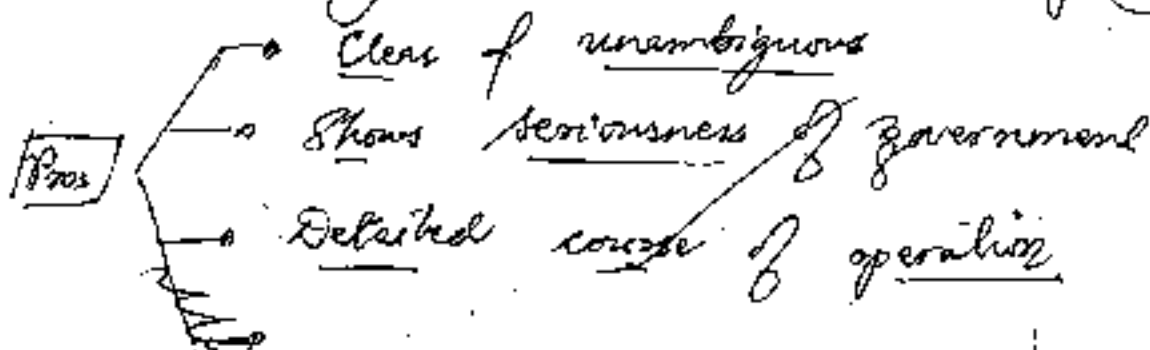 Clear & unambiguous
Shows seriousness of government
Pros
Detailed course of operation